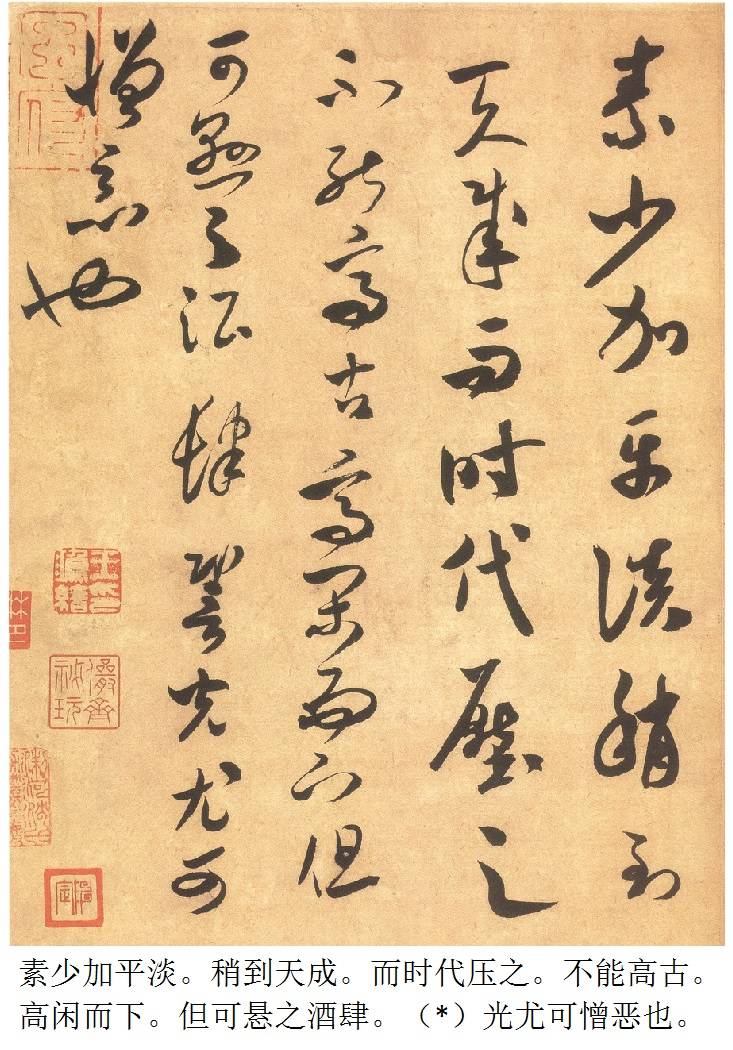 素少加平淡稍到
天成而时代压之
不能高古高闲而下但
可悬之酒肆䛒光尤可
憎恶也
素少加平淡。稍到天成。而时代压之。不能高古。
高闲而下。但可悬之酒肆。（*）光尤可憎恶也。